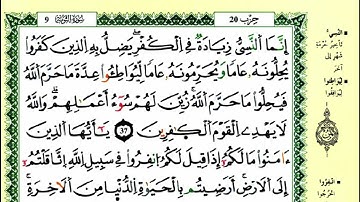 حزب 20
سورة التوبة 9
إِنَّمَا اَلنَّسِيُّ زِيَادَةٌ فِے اِلْكُفْرِ يَضِلُّ بِهِ اِلذِينَ كَفَرُواْ
يُحِلُّونَهُۥ عَاماً وَيُحَرِّمُونَهُۥ عَاماً لِّيُوَاطِـُٔواْ عِدَّةَ مَا حَرَّمَ اَللَّهُ
فَيُحِلُّواْ مَا حَرَّمَ اَللَّهُ زُيِّنَ لَهُمْ سُوٓءُ اَعْمَٰلِهِمْ وَاللَّهُ
لَا يَهْدِے اِلْقَوْمَ اَلْكَٰفِرِينَ 37 يَٰٓأَيُّهَا اَلذِينَ
ءَامَنُواْ مَا لَكُمُۥٓ إِذَا قِيلَ لَكُمُ اُنفِرُواْ فِے سَبِيلِ اِللَّهِ اِثَّاقَلْتُمُۥٓ
إِلَى اَلَارْضِ أَرَضِيتُم بِالْحَيَوٰةِ اِلدُّنْيَا مِنَ اَلَاخِرَةِ
النسيء:
تأخير حرمة
شهر إلى
آخر
ليواطئوا:
ليوافقوا
انفروا:
اخرجوا